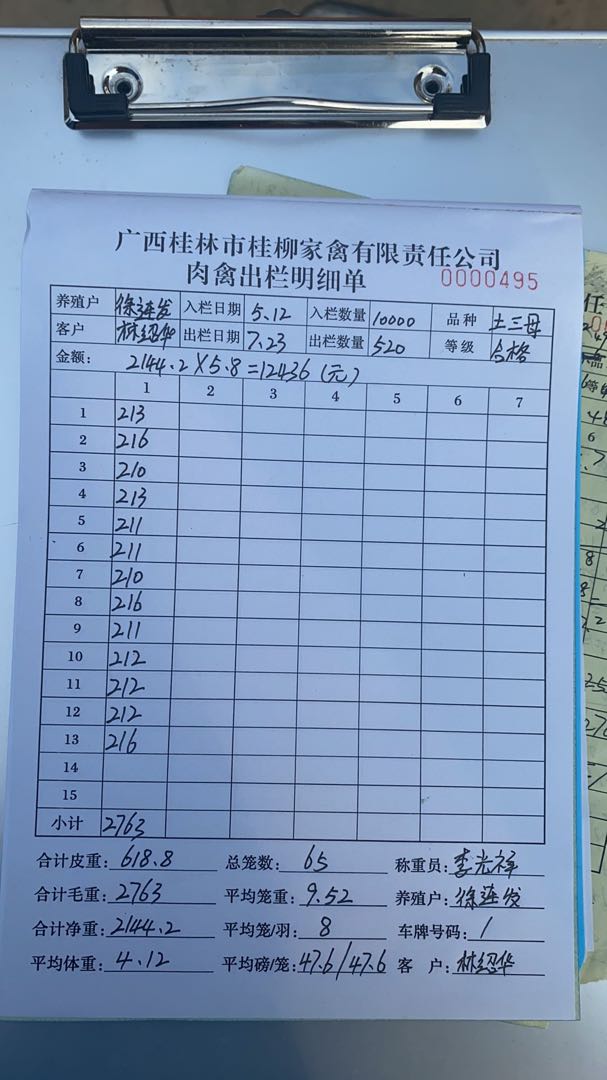 广西桂林市桂柳家禽有限责任公司
肉禽出栏明细单 0000495
养殖户 徐连发 入栏日期 5.12 入栏数量 10000 品种 土三母
客户 林绍华 出栏日期 7.23 出栏数量 520 等级 合格
金额: 2144.2×5.8=12436(元)
1 2 3 4 5 6 7
1 213
2 216
3 210
4 213
5 211
6 211
7 210
8 216
9 211
10 212
11 212
12 212
13 216
14
15
小计 2763
合计皮重: 618.8 总笼数: 65 称重员: 李光祥
合计毛重: 2763 平均笼重: 9.52 养殖户: 徐连发
合计净重: 2144.2 平均笼/羽: 8 车牌号码: 1
平均体重: 4.12 平均磅/笼: 47.6/47.6 客 户: 林绍华